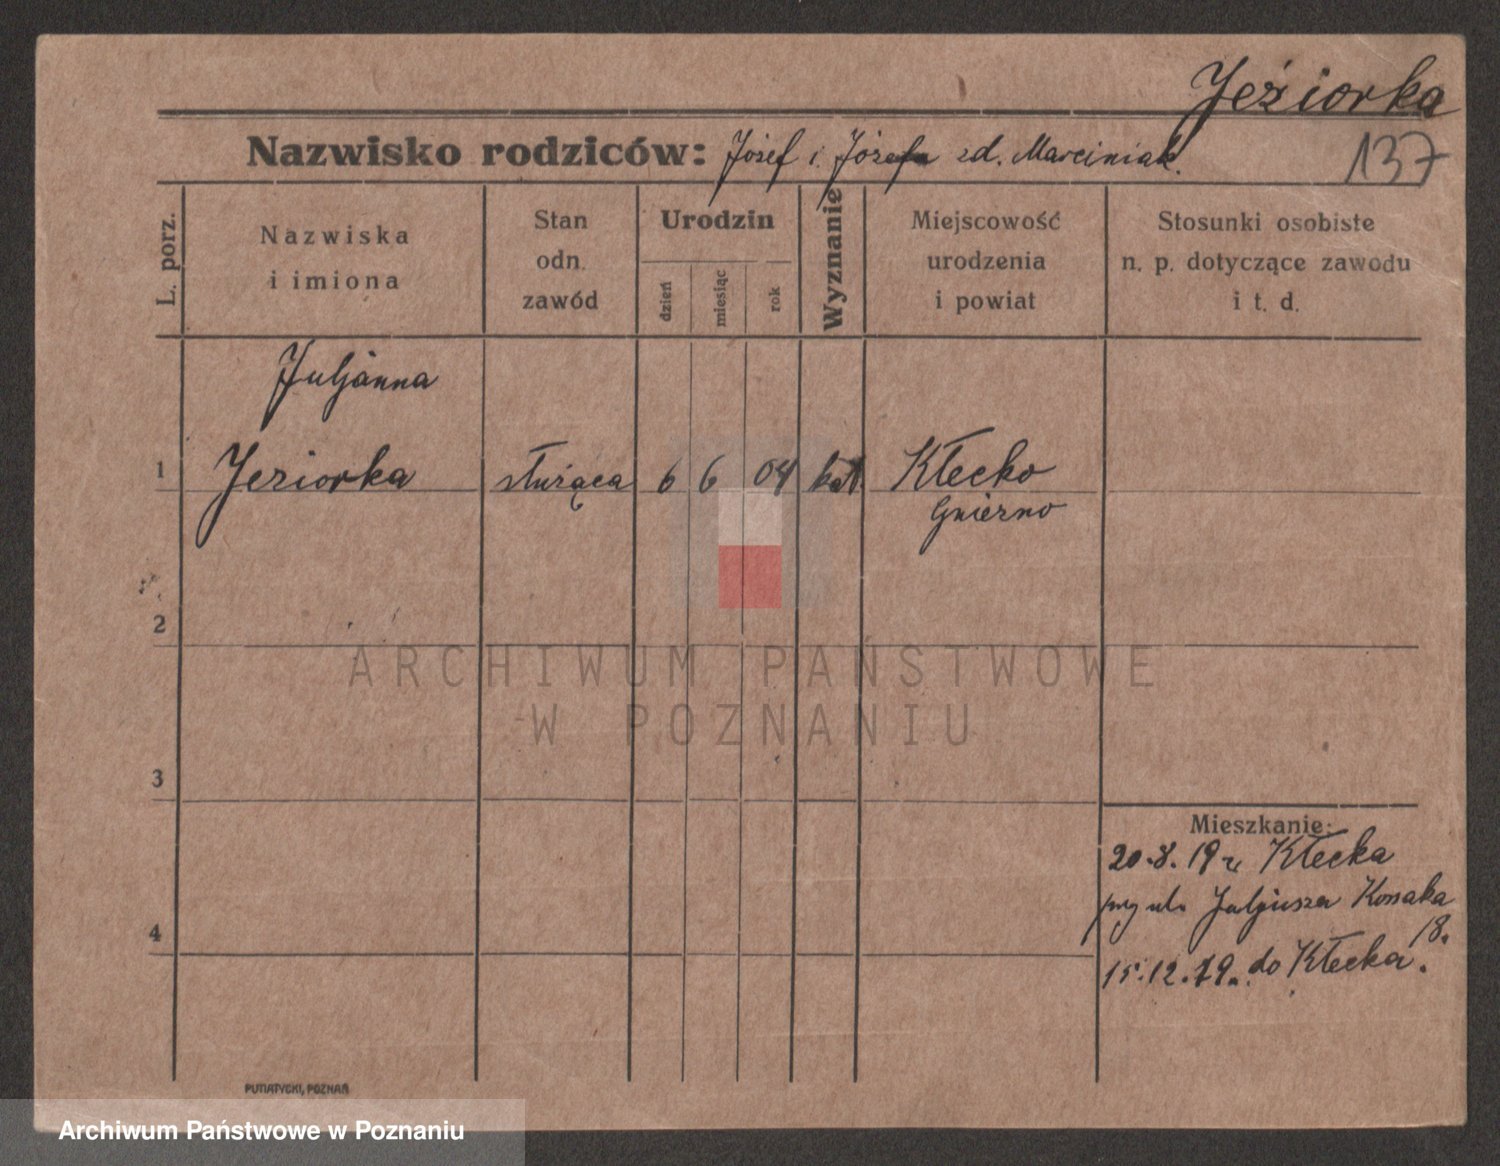 Jeziorka
137
Nazwisko rodziców: Józef i Józefa zd. Marciniak.
L. porz.
Nazwiska
i imiona
Stan
odn.
zawód
Urodzin
dzień
miesiąc
rok
Wyznanie
Miejscowość
urodzenia
i powiat
Stosunki osobiste
n. p. dotyczące zawodu
i t. d.
Juljanna
1 Jeziorka służąca 6 6 04 kat. Kłecko
Gniezno
2
ARCHIWUM PAŃSTWOWE
W POZNANIU
3
Mieszkanie:
20.8.19 z Kłecka
ul. Juljusza Kossaka
18.
4
15.12.19 do Kłecka.
PUTIATYCKI, POZNAŃ
Archiwum Państwowe w Poznaniu